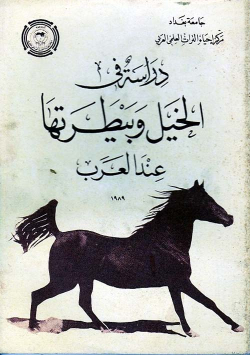 جامعة بغداد
مركز إحياء التراث العلمي العربي
دراسة في
الخيل وبيطرتها
عند العرب
١٩٨٩